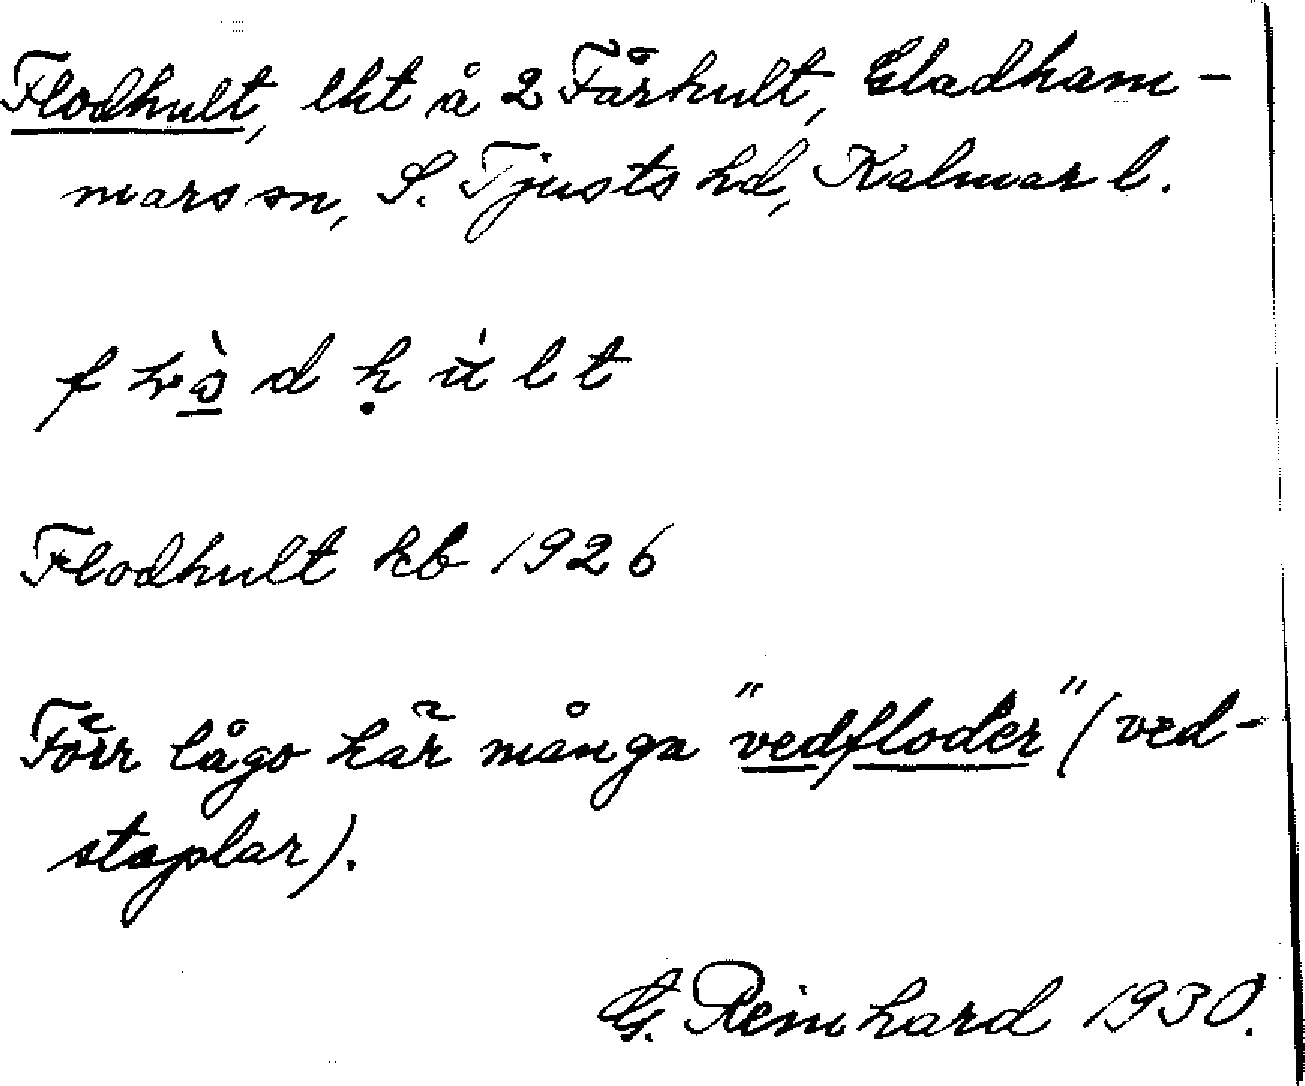 Flodhult, lht å 2 Fårhult, Gladham-
mars sn, S. Tjusts hd, Kalmar l.
Flodhult kb 1926
Förr lågo här många "vedfloder" (ved-
staplar).
G. Reinhard 1930.